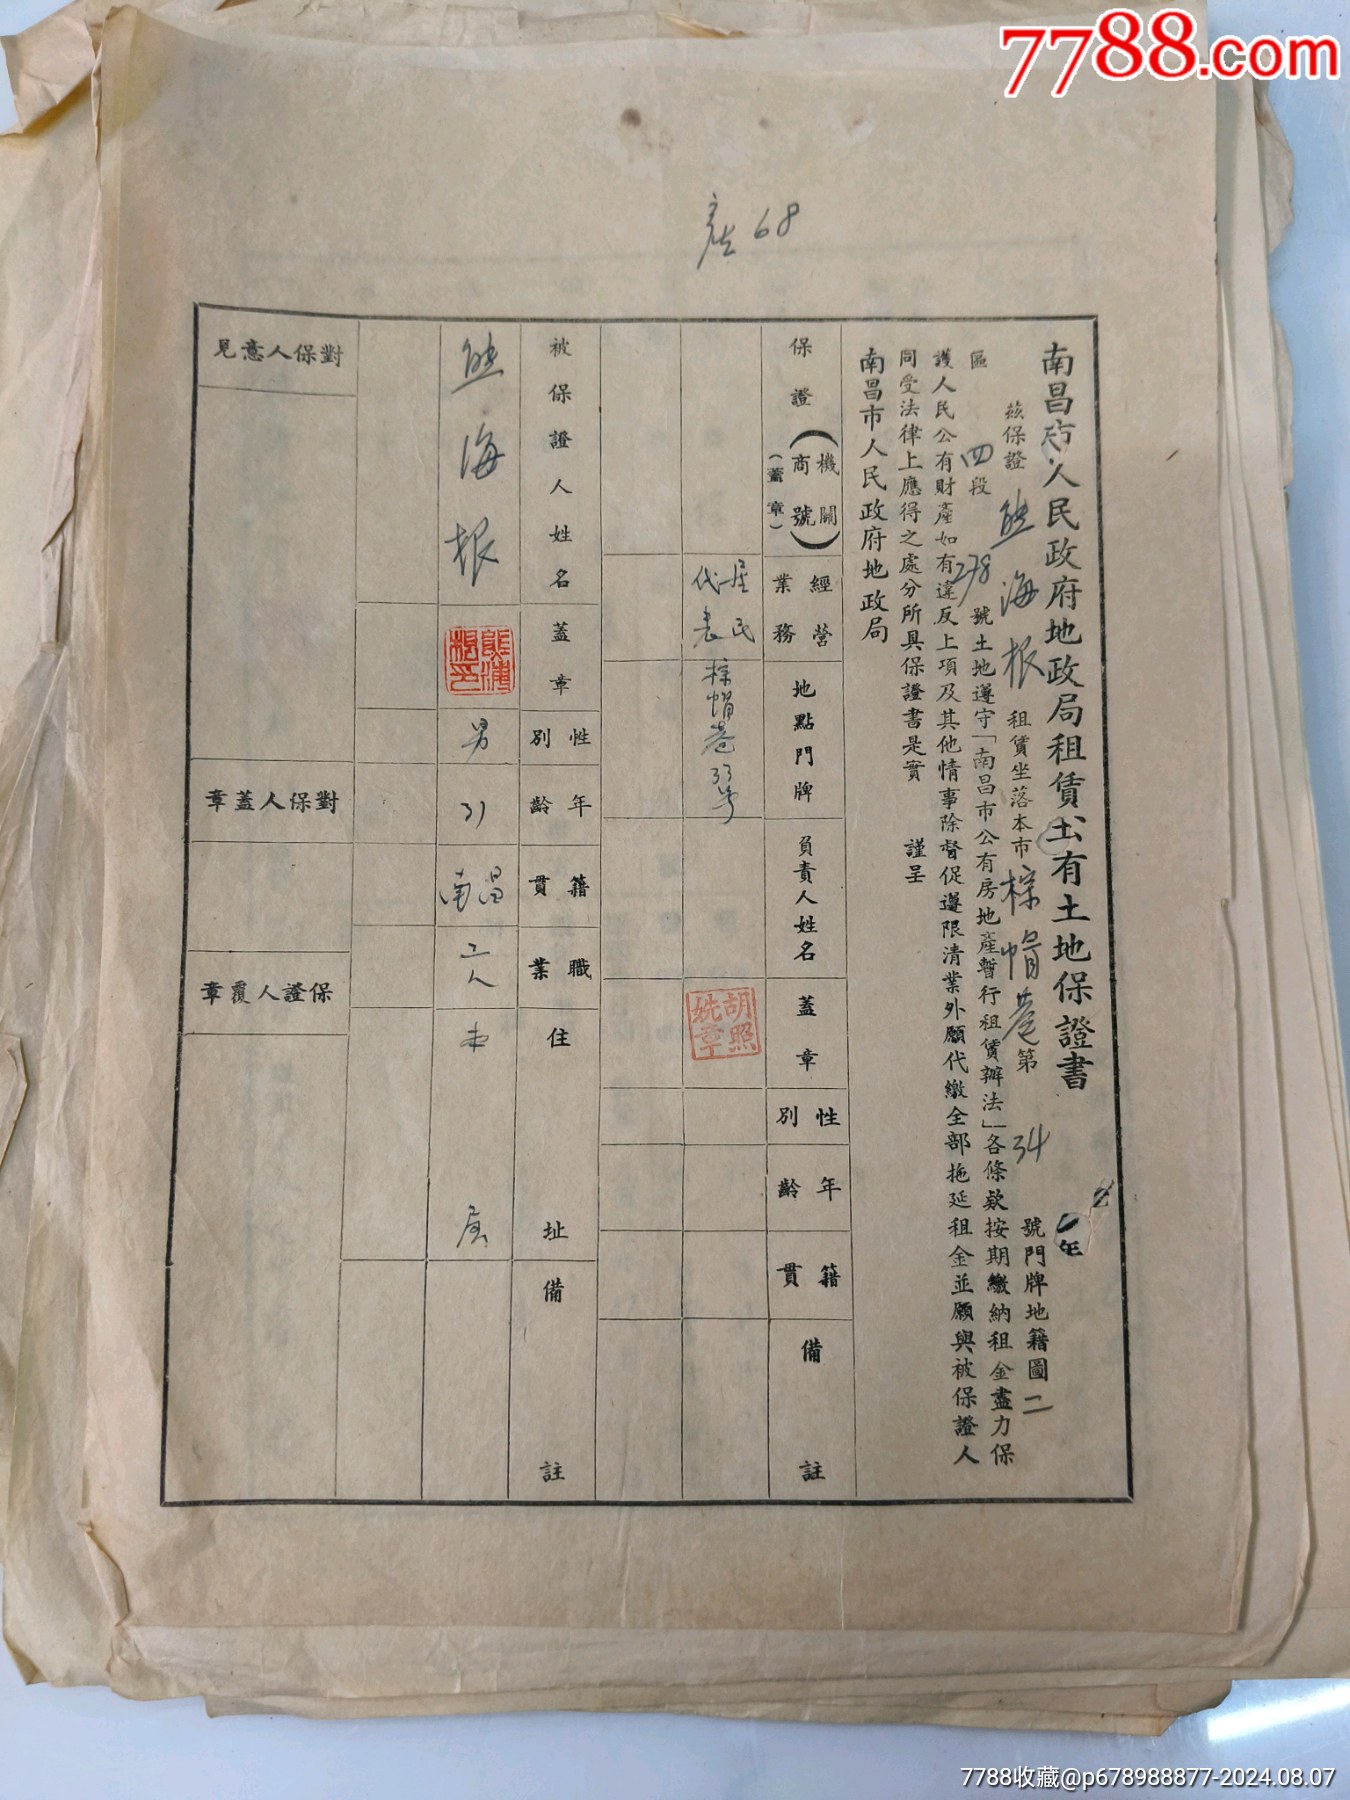 7788.com
产68
南昌市人民政府地政局租賃公有土地保證書
茲保證熊海根租賃坐落本市棕帽巷第34號門牌地籍圖二
區四段278號土地遵守「南昌市公有房地產暫行租賃辦法」各條款按期繳納租金盡力保
護人民公有財產如有違反上項及其他情事除督促遵限清業外願代繳全部拖延租金並願與被保證人
同受法律上應得之處分所具保證書是實 謹呈
南昌市人民政府地政局
保證(機關商號)(蓋章)
經營業務
地點門牌
負責人姓名
蓋章
性別
年齡
籍貫
備註
居民代表
棕帽巷33号
胡照姚章
被保證人姓名
蓋章
性別
年齡
籍貫
職業
住址
備註
熊海根
男
31
南昌
工人
本
房
對保人意見
對保人蓋章
保證人覆章
7788收藏@p678988877-2024.08.07